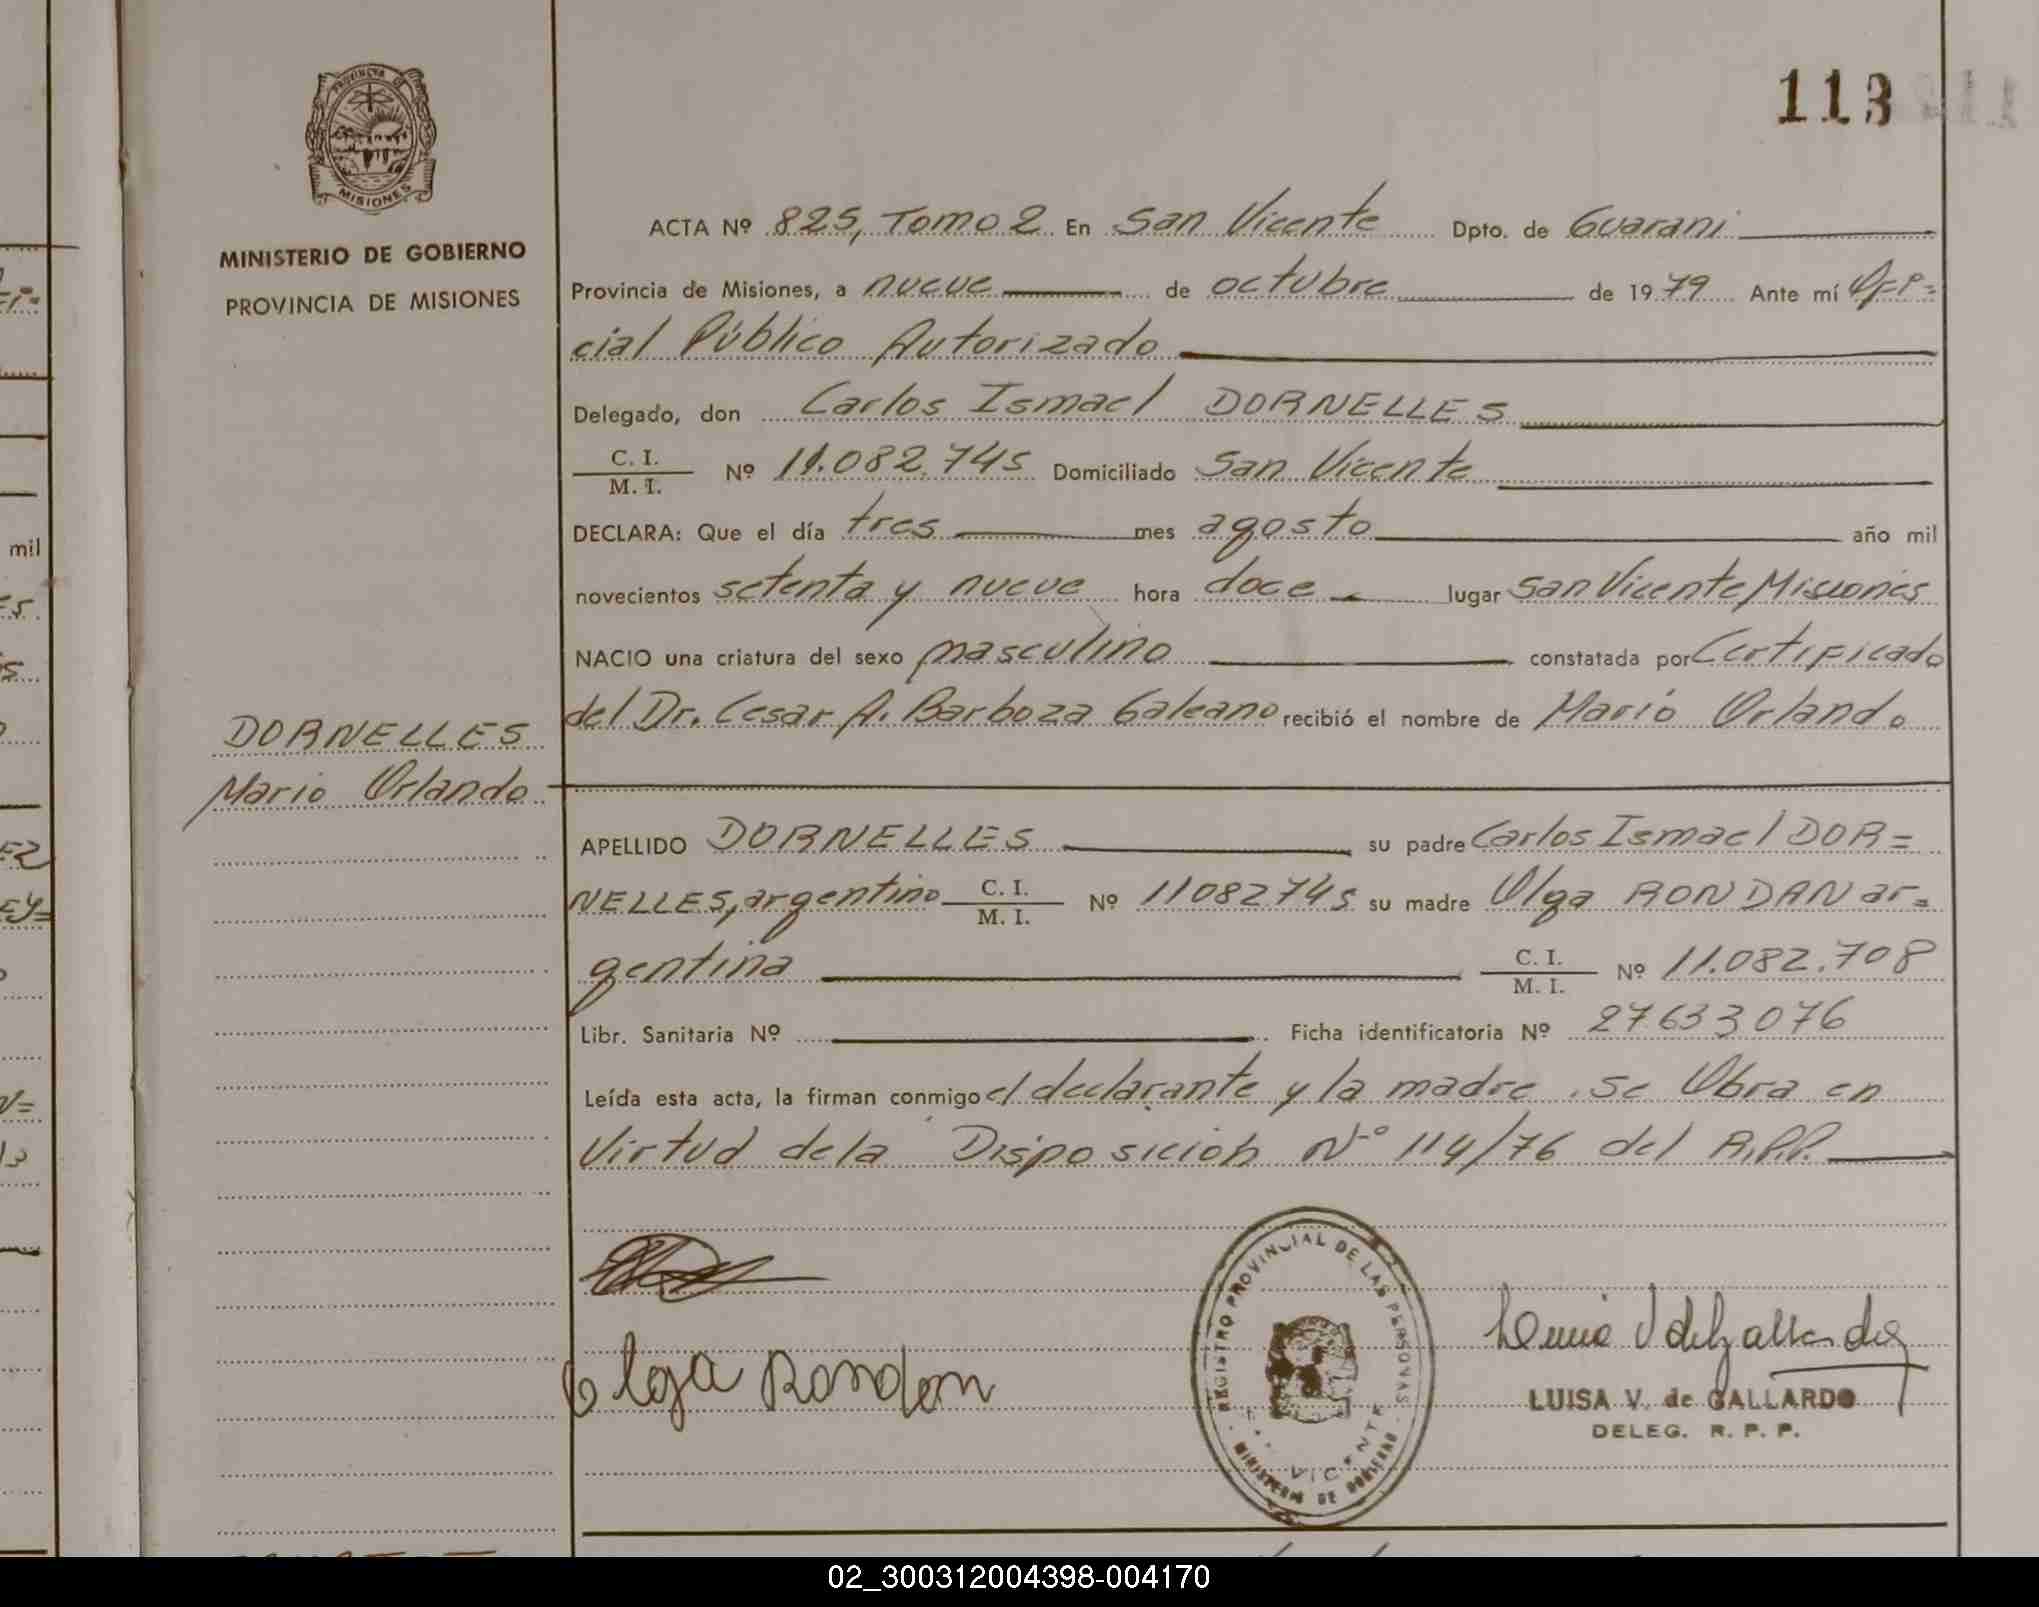 PROVINCIA DE
MISIONES
MINISTERIO DE GOBIERNO
PROVINCIA DE MISIONES
113
ACTA Nº 825, Tomo 2 En San Vicente Dpto. de Guarani
Provincia de Misiones, a nueve de octubre de 1979 Ante mí Ofi=
cial Público Autorizado
Delegado, don Carlos Ismael DORNELLES
C. I.
M. I. Nº 11.082.745 Domiciliado San Vicente
DECLARA: Que el día tres mes agosto año mil
novecientos setenta y nueve hora doce lugar San Vicente Misiones
NACIO una criatura del sexo masculino constatada por Certificado
del Dr. Cesar A. Barboza Galeano recibió el nombre de Mario Orlando
DORNELLES
Mario Orlando
APELLIDO DORNELLES su padre Carlos Ismael DOR=
NELLES, argentino C. I. M. I. Nº 11082745 su madre Olga RONDAN ar=
gentina C. I. M. I. Nº 11.082.708
Libr. Sanitaria Nº Ficha identificatoria Nº 27633076
Leída esta acta, la firman conmigo el declarante y la madre. Se Obra en
Virtud de la Disposición Nº 114/76 del R.P.P.
Olga Rondan
REGISTRO PROVINCIAL DE LAS PERSONAS
VICENTE
MINISTERIO DE GOBIERNO
LUISA V. de GALLARDO
DELEG. R. P. P.
02_300312004398-004170